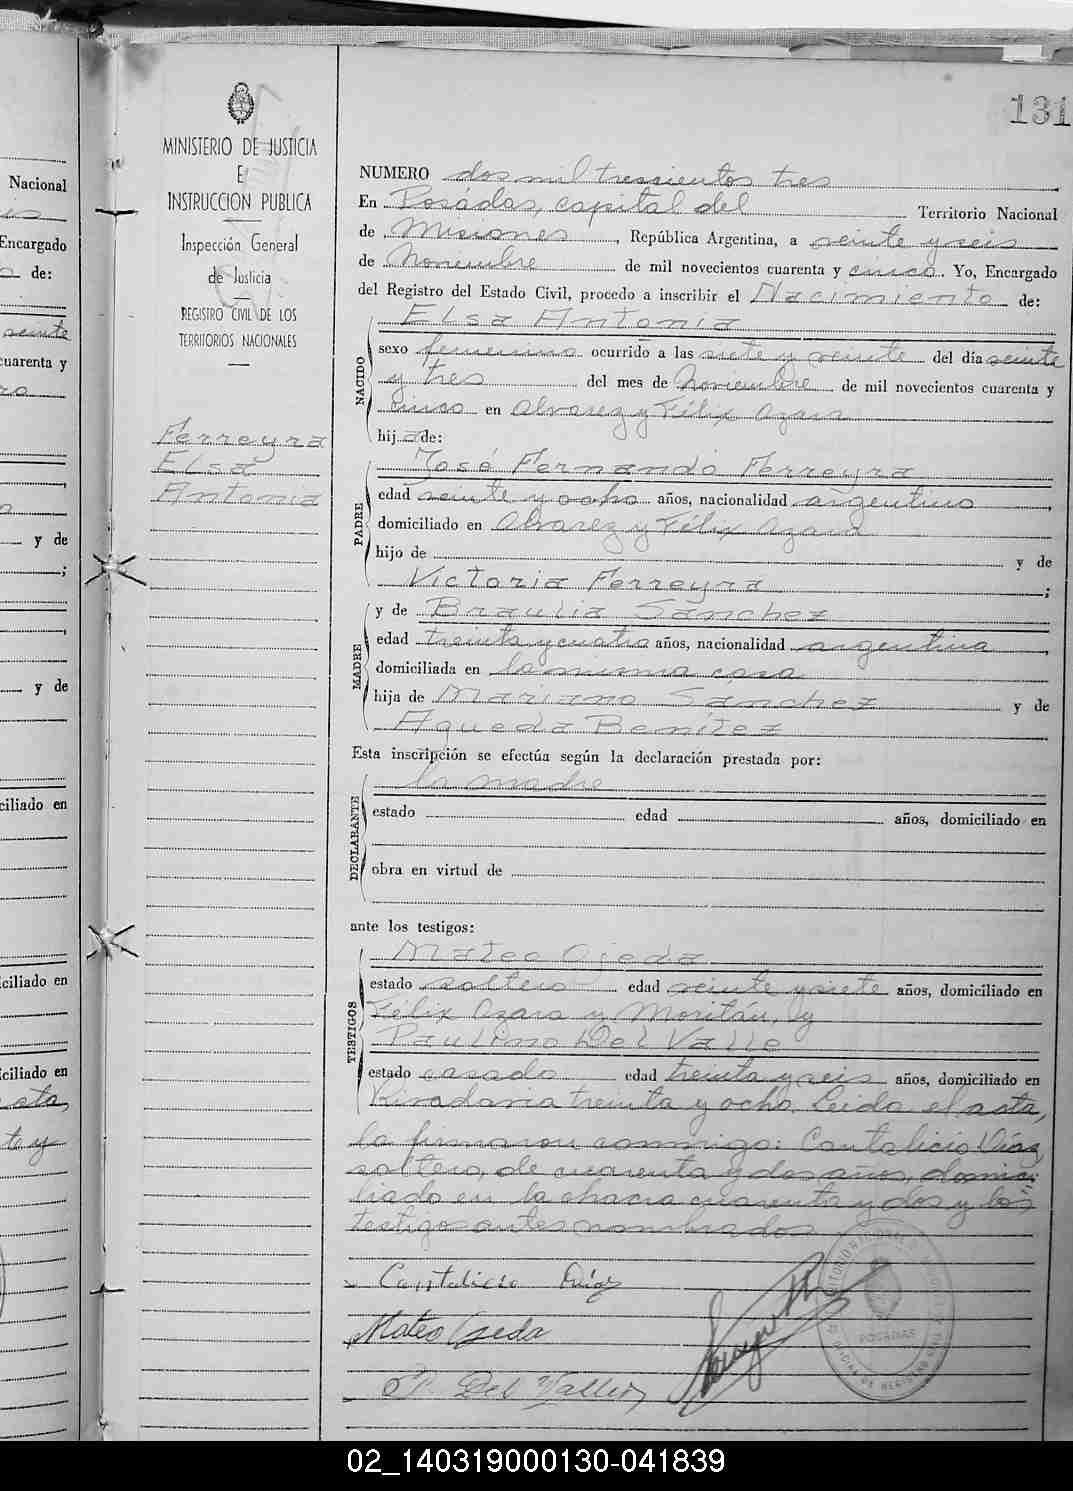 131
MINISTERIO DE JUSTICIA
E
INSTRUCCION PUBLICA
Inspección General
de Justicia
REGISTRO CIVIL DE LOS
TERRITORIOS NACIONALES
Ferreyra
Elsa
Antonia
NUMERO dos mil trescientos tres
En Posadas, capital del Territorio Nacional
de Misiones, República Argentina, a veinte y seis
de Noviembre de mil novecientos cuarenta y cinco. Yo, Encargado
del Registro del Estado Civil, procedo a inscribir el Nacimiento de:
NACIDO
Elsa Antonia
sexo femenino ocurrido a las siete y veinte del día veinte
y tres del mes de Noviembre de mil novecientos cuarenta y
cinco en Alvarez y Félix Azara
hij a de:
PADRE
José Fernando Ferreyra
edad veinte y ocho años, nacionalidad argentino,
domiciliado en Alvarez y Félix Azara
hijo de y de
Victoria Ferreyra;
MADRE
y de Braulia Sánchez
edad treinta y cuatro años, nacionalidad argentina,
domiciliada en la misma casa
hija de Mariano Sánchez y de
Agueda Benítez
Esta inscripción se efectúa según la declaración prestada por:
DECLARANTE
la madre
estado edad años, domiciliado en
obra en virtud de
ante los testigos:
TESTIGOS
Mateo Ojeda
estado soltero edad veinte y siete años, domiciliado en
Félix Azara y Moritán, y
Paulino Del Valle
estado casado edad treinta y seis años, domiciliado en
Rivadavia treinta y ocho. Leida el acta,
la firmaron conmigo: Cantalicio Díaz,
soltero, de cuarenta y dos años, domici-
liado en la chacra cuarenta y dos y los
testigos antes nombrados
Cantalicio Díaz
Mateo Ojeda
P. Del Valle
POSADAS
Nacional
Encargado
de:
veinte
cuarenta y
y de
;
y de
ciliado en
ciliado en
ciliado en
acta,
te y
02_140319000130-041839